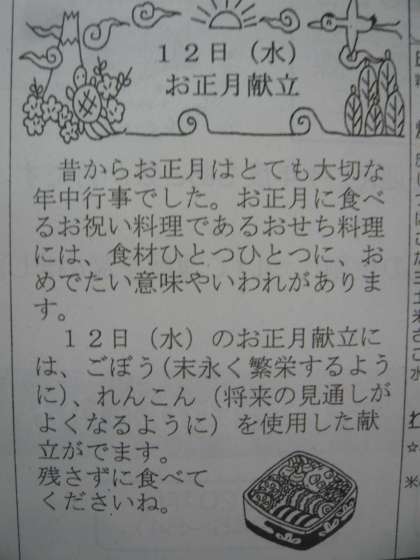 12日（水）
お正月献立
昔からお正月はとても大切な
年中行事でした。お正月に食べ
るお祝い料理であるおせち料理
には、食材ひとつひとつに、お
めでたい意味やいわれがありま
す。
12日（水）のお正月献立に
は、ごぼう（末永く繁栄するよう
に）、れんこん（将来の見通しが
よくなるように）を使用した献
立がでます。
残さずに食べて
くださいね。